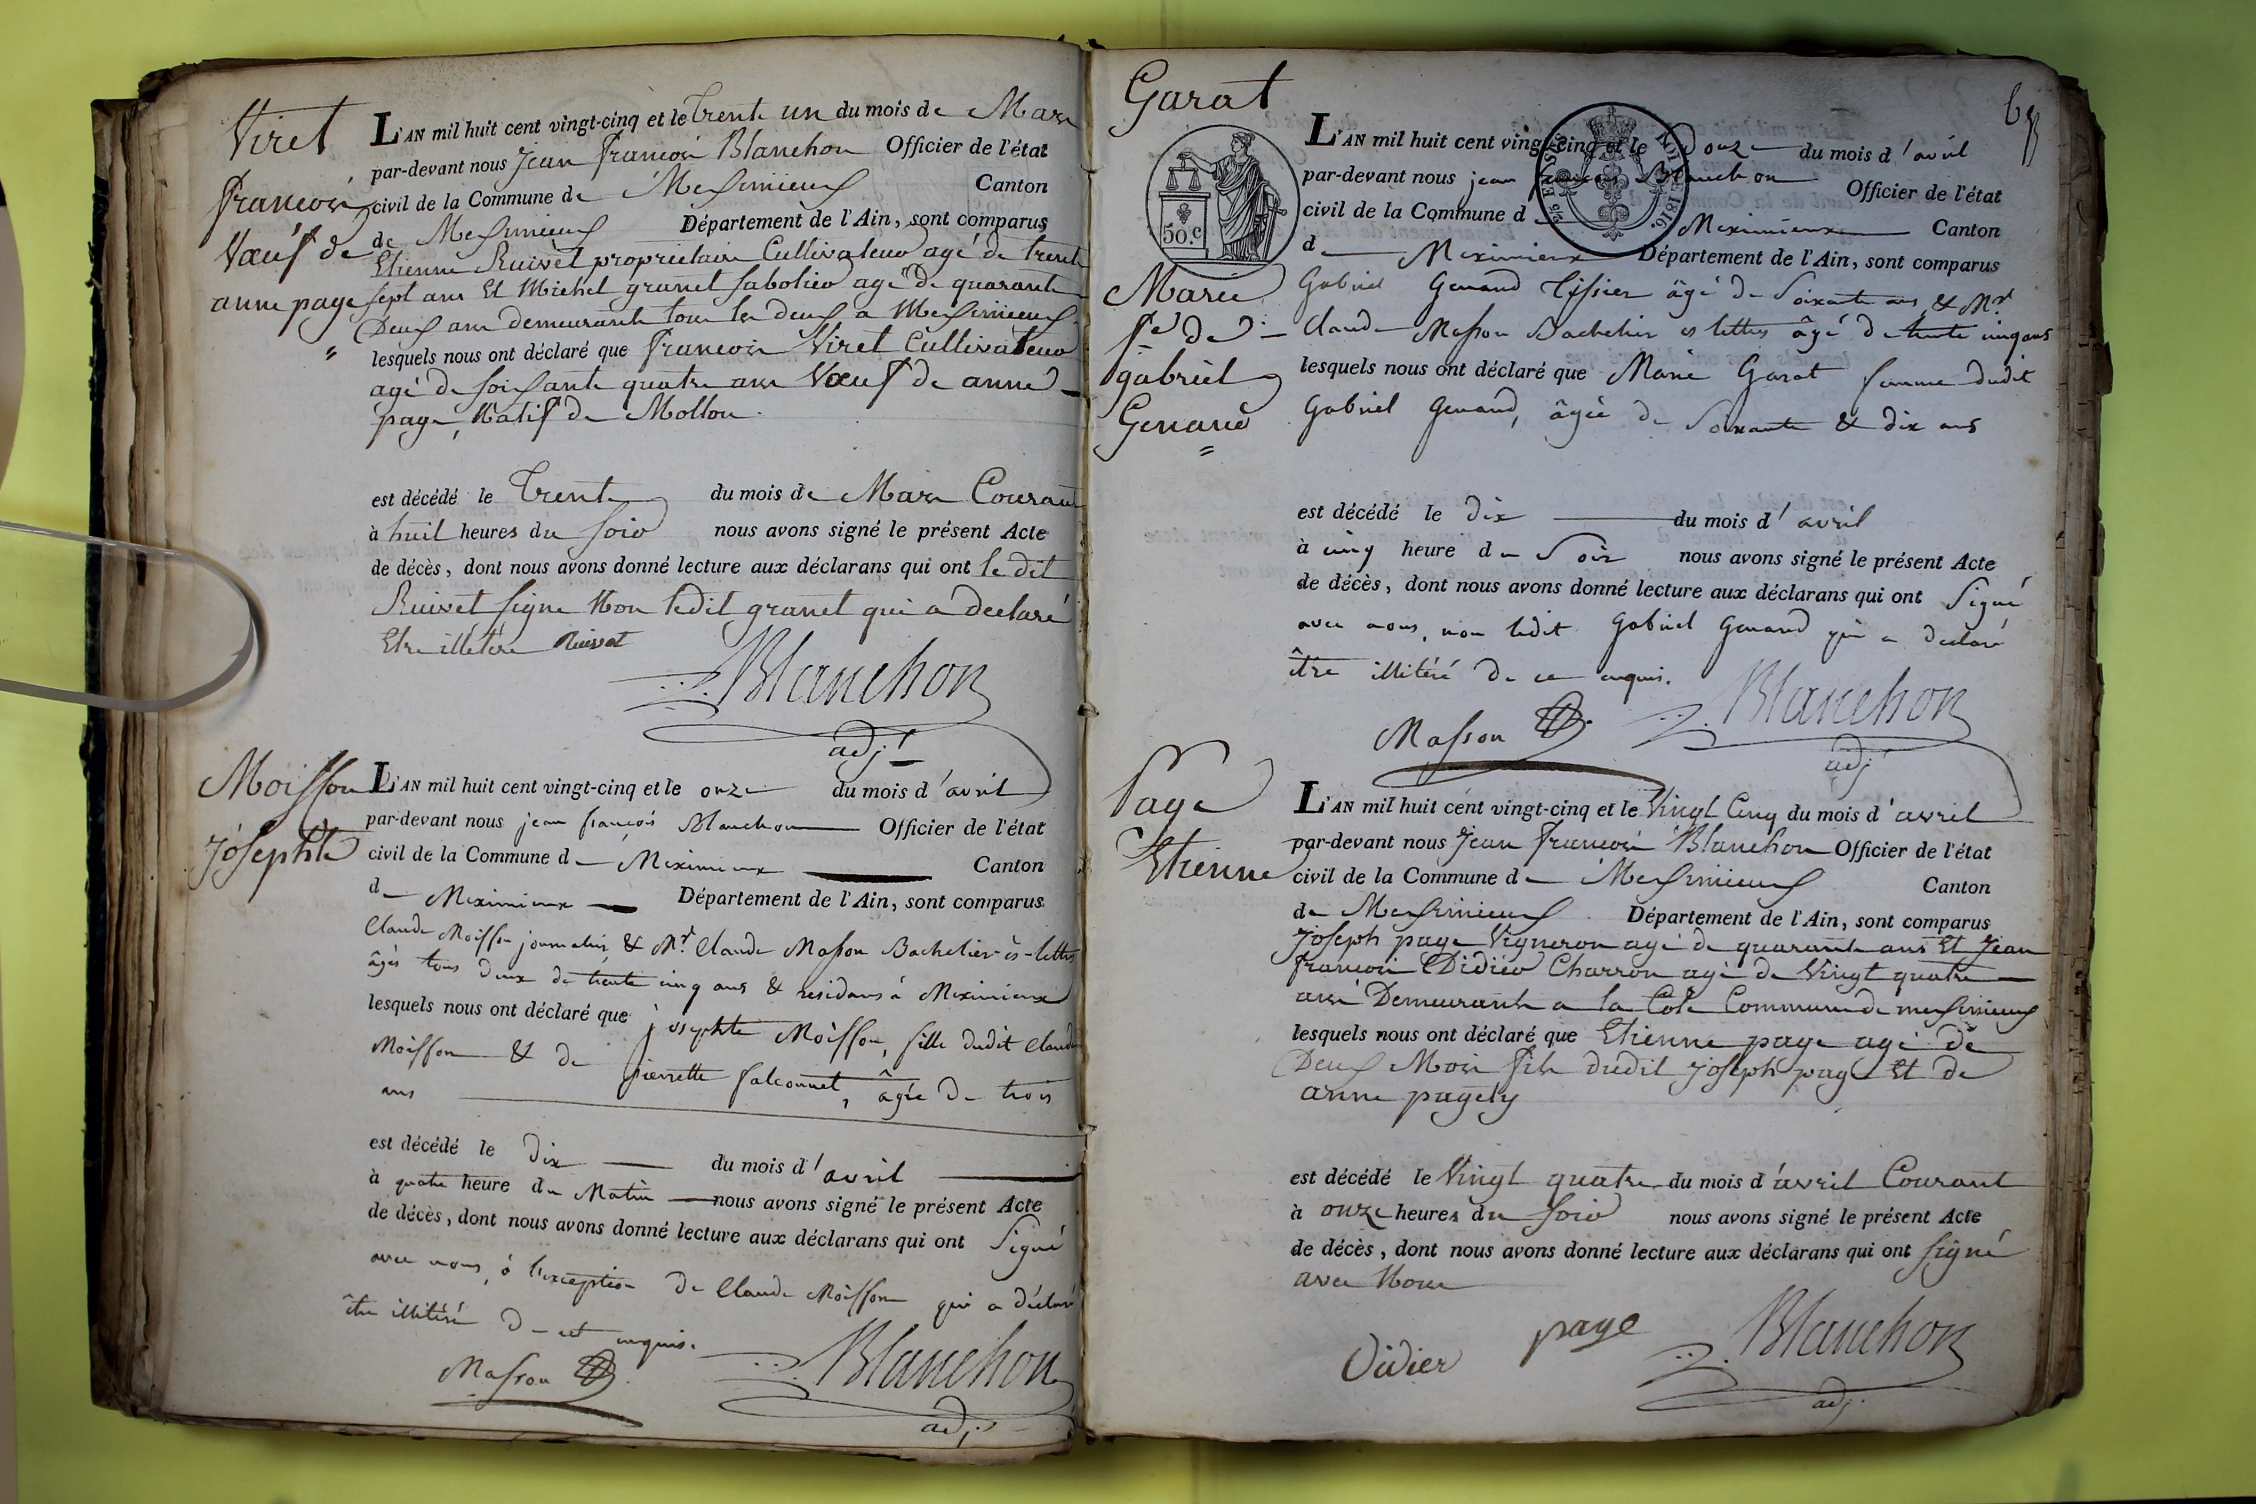 Viret
françois
Vœuf de
anne page
L'AN mil huit cent vingt-cinq et le Trente un du mois de Mars
par-devant nous Jean françois Blanchon Officier de l'état
civil de la Commune de Messimieux Canton
de Messimieux Département de l'Ain, sont comparus
Etienne Ruivet propriétaire Cultivateur agé de trente
sept ans Et Michel granet sabotier agé de quarante
Deux ans demeurants tous les deux a Messimieux
lesquels nous ont déclaré que françois Viret Cultivateur
agé de soissante quatre ans Vœuf de anne
page, Natif de Mollon
est décédé le Trente du mois de Mars Courant
à huit heures du soir nous avons signé le présent Acte
de décès, dont nous avons donné lecture aux déclarans qui ont le dit
Ruivet signe Non ledit granet qui a declaré
Etre illétére Ruivet
Blanchon
adj.t
Moisson
Josephte
L'AN mil huit cent vingt-cinq et le onze du mois d'avril
par-devant nous jean françois Blanchon Officier de l'état
civil de la Commune de Meximieux Canton
de Meximieux Département de l'Ain, sont comparus
Claude Moisson journalier, & Mr. Claude Masson Bachelier-ès-lettres
âgés tous deux de trente cinq ans & residans à Meximieux
lesquels nous ont déclaré que josephte Moisson, fille dudit Claude
Moisson & de pierrette falconnet, âgée de trois
ans
est décédé le dix du mois d'avril
à quatre heure du Matin nous avons signé le présent Acte
de décès, dont nous avons donné lecture aux déclarans qui ont Signé
avec nous, à l'exception de Claude Moisson qui a déclaré
être illitéré de cet enquis.
Masson
Blanchon
adj.
Garat
Marie
fe. de
gabriel
Genand
50.c
69
L'AN mil huit cent vingt-cinq et le Douze du mois d'avril
par-devant nous jean françois Blanchon Officier de l'état
civil de la Commune d Meximieux Canton
d Meximieux Département de l'Ain, sont comparus
Gabriel Genand Tissier âgé de Soixante ans, & Mr.
Claude Masson Bachelier ès lettres âgé de trente cinq ans
lesquels nous ont déclaré que Marie Garat femme dudit
Gabriel Genand, âgée de Soixante & dix ans
est décédé le dix du mois d'avril
à cinq heure du Soir nous avons signé le présent Acte
de décès, dont nous avons donné lecture aux déclarans qui ont Signé
avec nous, non ledit Gabriel Genand qui a declaré
être illitéré de ce enquis.
Masson
Blanchon
adj.
Page
Etienne
L'AN mil huit cent vingt-cinq et le Vingt Cinq du mois d'avril
par-devant nous Jean françois Blanchon Officier de l'état
civil de la Commune de Messimieux Canton
de Messimieux Département de l'Ain, sont comparus
Joseph page Vigneron agé de quarante ans Et Jean
françois Didier Charron agé de Vingt quatre
ans Demeurants a la Cote Commune de messimieux
lesquels nous ont déclaré que Etienne page agé de
Deux Mois fils dudit Joseph page Et de
anne
est décédé le Vingt quatre du mois d'avril Courant
à onze heures du soir nous avons signé le présent Acte
de décès, dont nous avons donné lecture aux déclarans qui ont signé
avec Nous
Didier
page
Blanchon
adj.